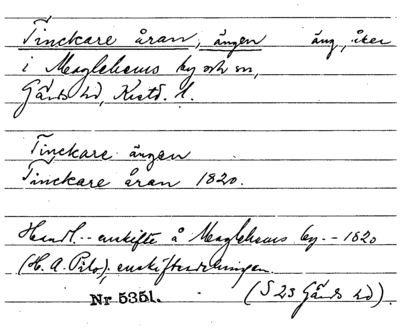 Tinckare åran, ängen äng, åker
i Maglehems by och sn,
Gärds hd, Krstd. l.
Tinckare ängen
Tinckare åran 1820.
Handl. - enskifte å Maglehems by. - 1820
(H. A. Pilo), enskiftesdelningen.
Nr 5351. (S 23 Gärds hd).